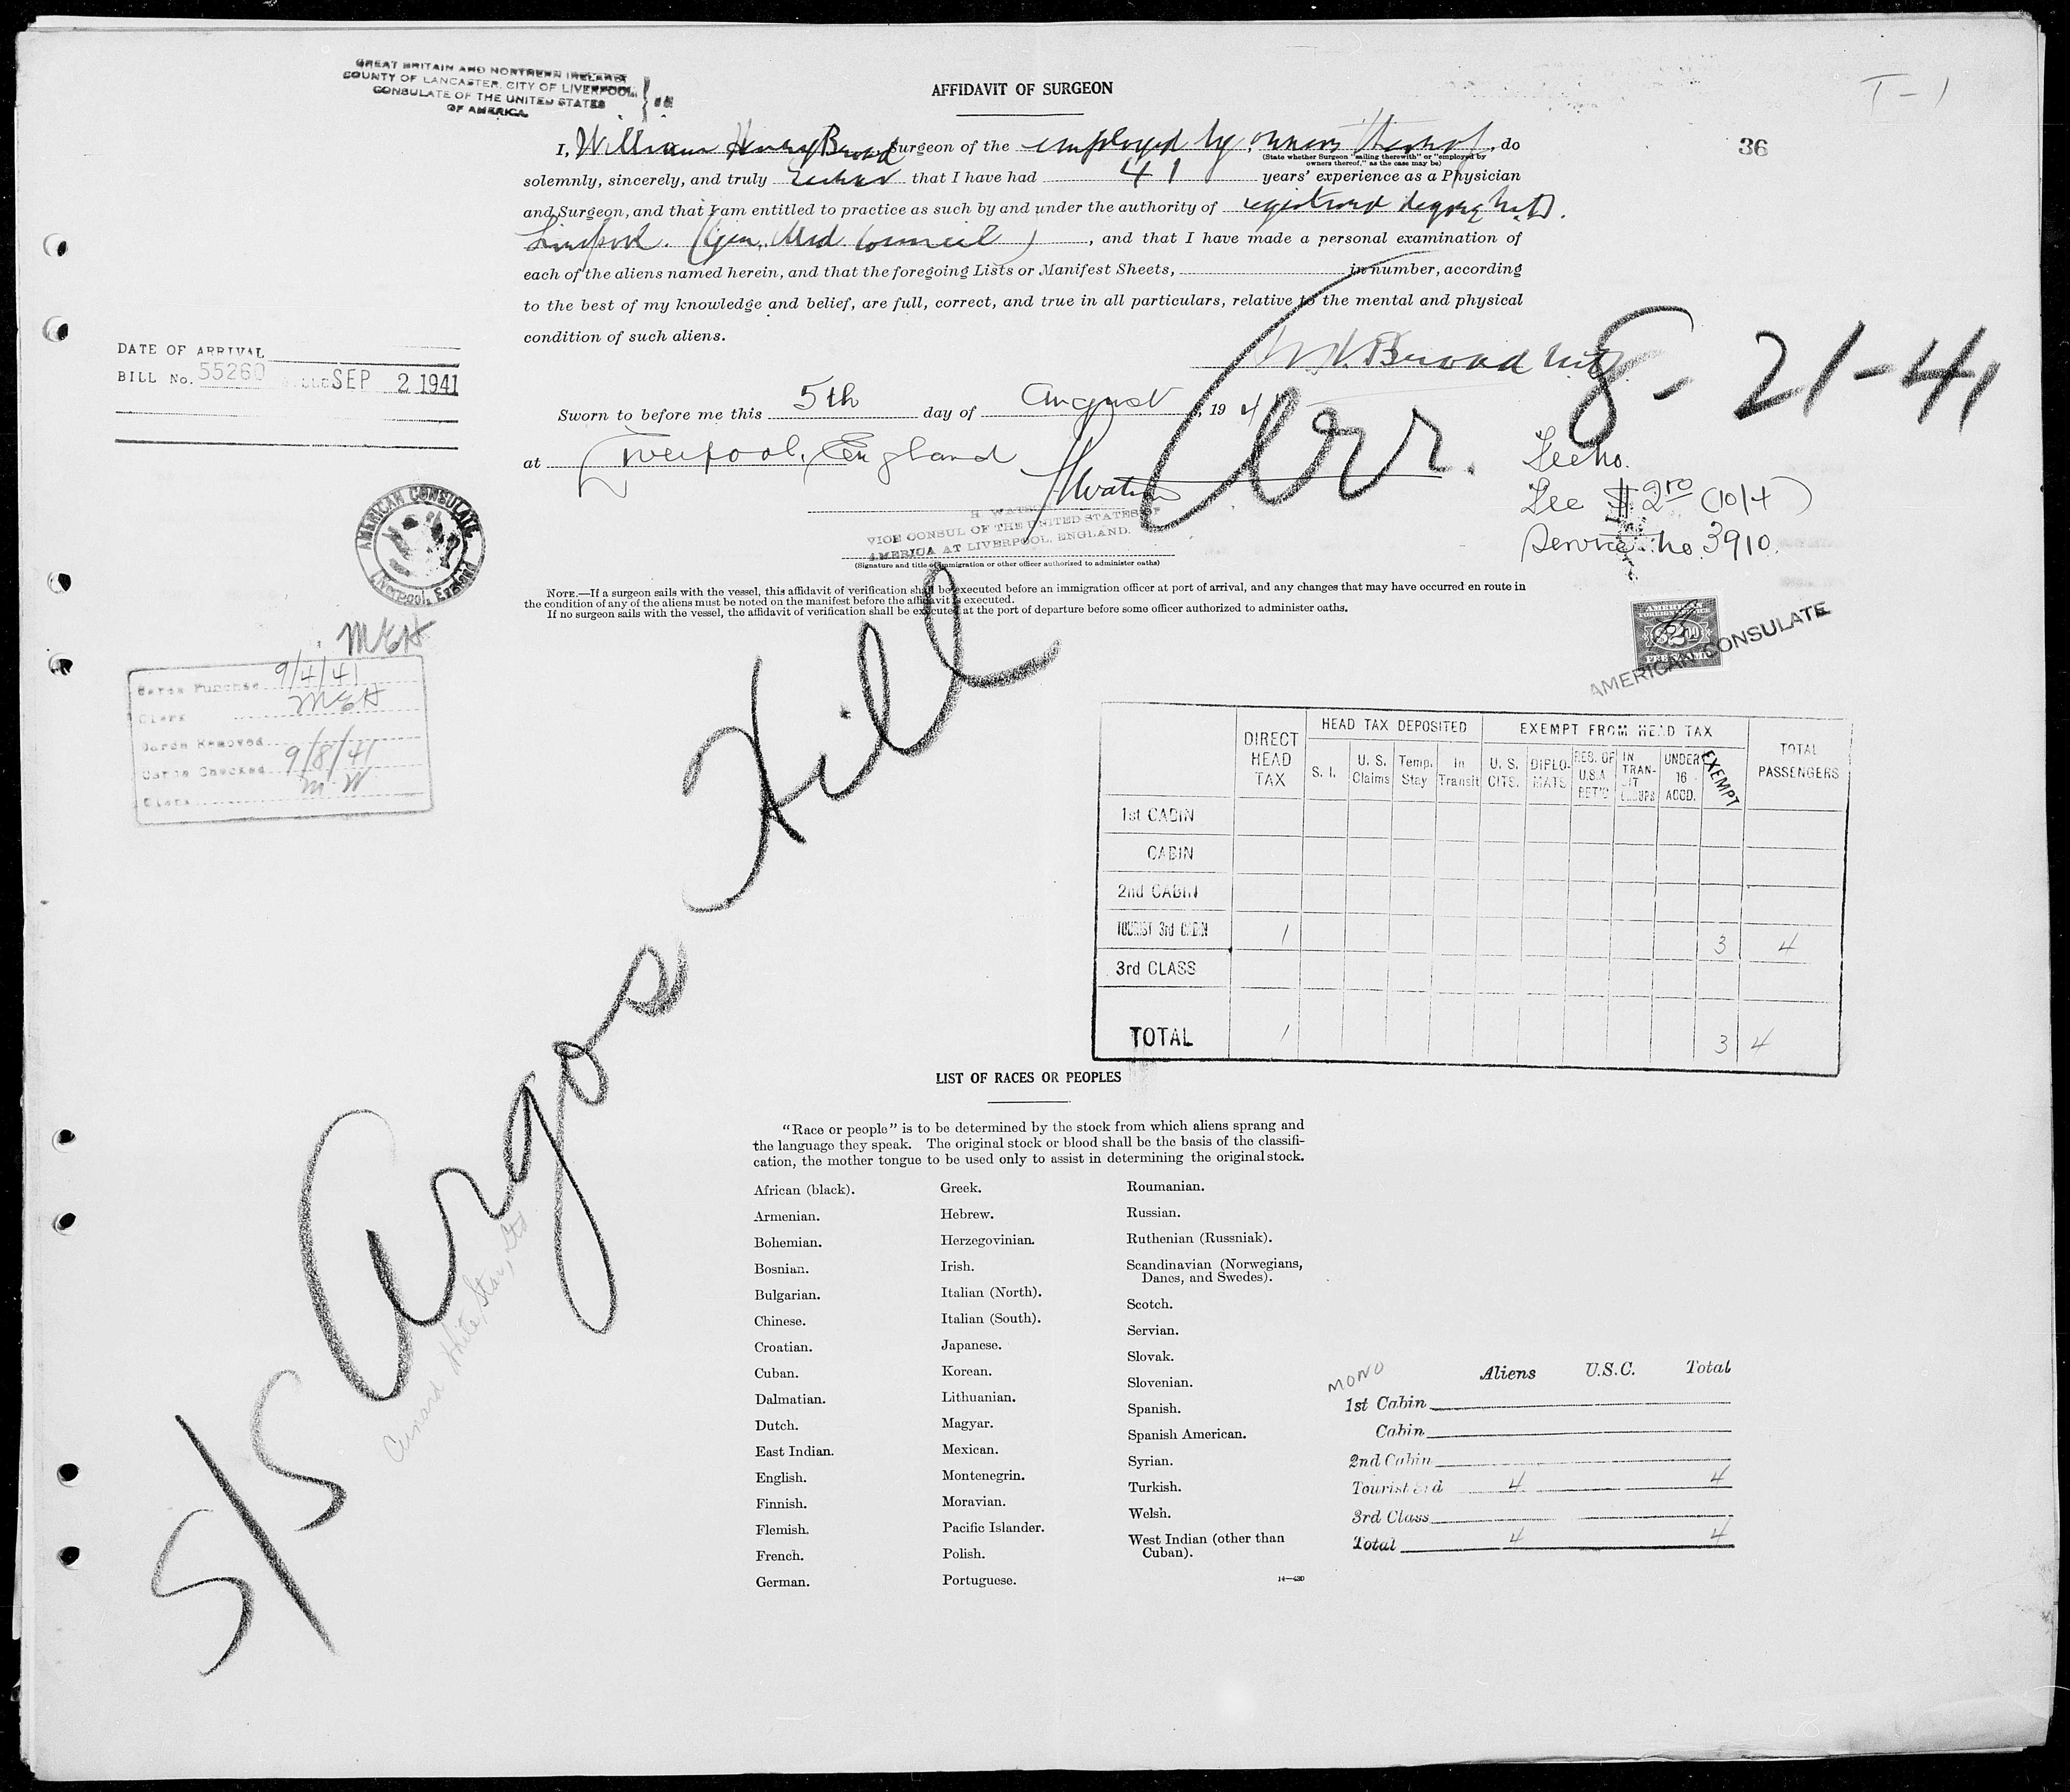 GREAT BRITAIN AND NORTHERN IRELAND
COUNTY OF LANCASTER, CITY OF LIVERPOOL
CONSULATE OF THE UNITED STATES
OF AMERICA
} ss
T-1
36
AFFIDAVIT OF SURGEON
I, William Henry Broad Surgeon of the employed by owners thereof, do
(State whether Surgeon "sailing therewith" or "employed by
owners thereof," as the case may be)
solemnly, sincerely, and truly that I have had 41 years' experience as a Physician
and Surgeon, and that I am entitled to practice as such by and under the authority of registered
Liverpool. (Gen. Med Council), and that I have made a personal examination of
each of the aliens named herein, and that the foregoing Lists or Manifest Sheets, in number, according
to the best of my knowledge and belief, are full, correct, and true in all particulars, relative to the mental and physical
condition of such aliens.
W. H. Broad
Arr. 8-21-41
DATE OF ARRIVAL
BILL No. 55260 SEP 2 1941
Sworn to before me this 5th day of August, 1941
at Liverpool, England
H Watson
VICE CONSUL OF THE UNITED STATES OF
AMERICA AT LIVERPOOL, ENGLAND.
(Signature and title of immigration or other officer authorized to administer oaths)
Fee $2.00 (10/4)
Service no 3910.
AMERICAN CONSULATE
Liverpool, England
NOTE.—If a surgeon sails with the vessel, this affidavit of verification shall be executed before an immigration officer at port of arrival, and any changes that may have occurred en route in
the condition of any of the aliens must be noted on the manifest before the affidavit is executed.
If no surgeon sails with the vessel, the affidavit of verification shall be executed at the port of departure before some officer authorized to administer oaths.
AMERICAN
$2.00
AMERICAN CONSULATE
MEH
Cards Punched 9/4/41
Clerk MEH
Cards Removed
Cards Checked 9/8/41
Clerk M W
S/S Argos Hill
Cunard White Star, Ltd
DIRECT HEAD TAX
HEAD TAX DEPOSITED
EXEMPT FROM HEAD TAX
TOTAL PASSENGERS
S. I.
U. S. Claims
Temp. Stay
In Transit
U. S. CITS.
DIPLO-MATS
RES. OF U.S.A RET'G
IN TRAN-SIT GROUPS
UNDER 16 ACCD.
EXEMPT
1st CABIN
CABIN
2nd CABIN
TOURIST 3rd CABIN 1 3 4
3rd CLASS
TOTAL 1 3 4
LIST OF RACES OR PEOPLES
"Race or people" is to be determined by the stock from which aliens sprang and
the language they speak. The original stock or blood shall be the basis of the classifi-
cation, the mother tongue to be used only to assist in determining the original stock.
African (black).
Armenian.
Bohemian.
Bosnian.
Bulgarian.
Chinese.
Croatian.
Cuban.
Dalmatian.
Dutch.
East Indian.
English.
Finnish.
Flemish.
French.
German.
Greek.
Hebrew.
Herzegovinian.
Irish.
Italian (North).
Italian (South).
Japanese.
Korean.
Lithuanian.
Magyar.
Mexican.
Montenegrin.
Moravian.
Pacific Islander.
Polish.
Portuguese.
Roumanian.
Russian.
Ruthenian (Russniak).
Scandinavian (Norwegians,
Danes, and Swedes).
Scotch.
Servian.
Slovak.
Slovenian.
Spanish.
Spanish American.
Syrian.
Turkish.
Welsh.
West Indian (other than
Cuban).
14—430
MONO
Aliens U.S.C. Total
1st Cabin
Cabin
2nd Cabin
Tourist 3rd 4 4
3rd Class
Total 4 4